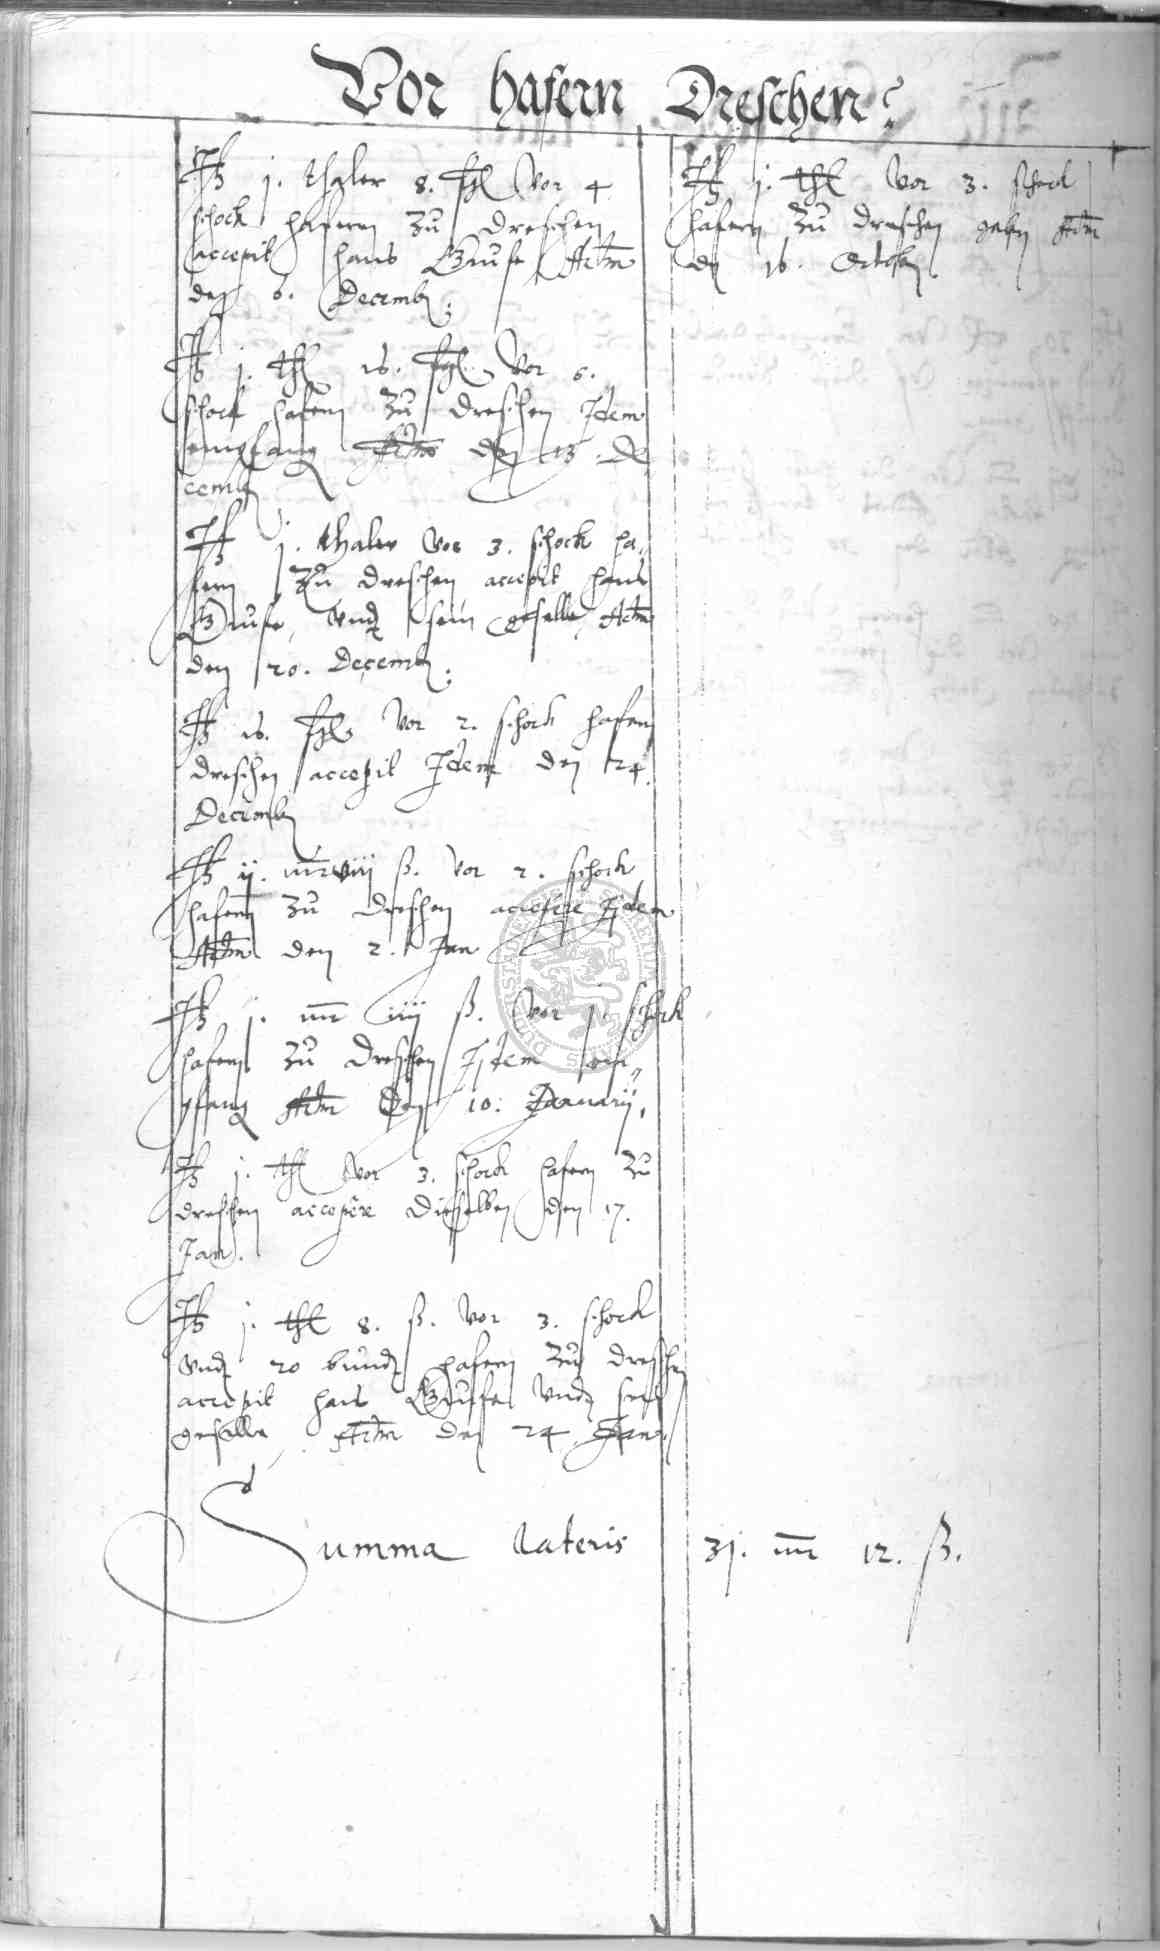 Vor hafern Dreschen
It j. thaler 8. ßgl vor 4
schock hafern zu dreschen
accepit hans Gruse Actm
den 6. Decemb:
It j. thl 16. ßgl. vor 5.
schock hafern zu dreschen Idem
empfang Actm den 13. De
cemb
It j. thaler vor 3. schock ha,
fern zu dreschen accepit hans
Gruse, vnd sein geselle, Actm
den 20. Decemb:
It 16. ßgl vor 2. schock hafern
dreschen accepit Idem den 24.
Decemb
It ij. mr viij ß. vor 2. schock
hafern zu dreschen accepere Ijdem
Actm den 2. Jan
It j. mr iiij ß. vor j. schock
hafern zu dreschen Ijdem em,
pfang Actm den 10. Januarij,
It j. thl vor 3. schock hafern zu
dreschen accepere dieselben den 17.
Jan.
It j. thl 8. ß. vor 3. schock
vnd 20 bundt hafern zu dreschen
accepit hans Gruse vnd sein
geselle, Actm den 24 Jan.
It j. thl vor 3. schock
hafern zu dreschen geben Actm
den 16. Octob
Summa Lateris 31. mr 12. ß.